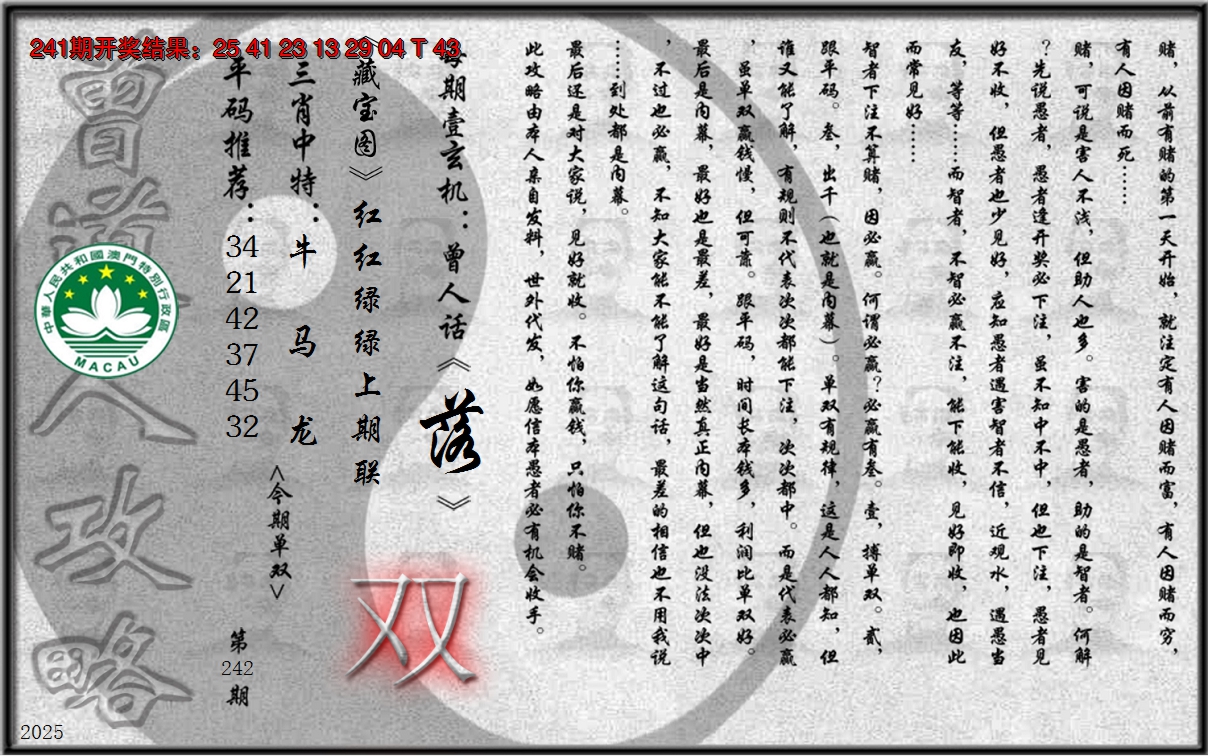 241期开奖结果：25 41 23 13 29 04 T 43
赌，从前有赌的第一天开始，就注定有人因赌而富，有人因赌而穷，
有人因赌而死……
赌，可说是害人不浅，但助人也多。害的是愚者，助的是智者。何解
？先说愚者，愚者逢开奖必下注，虽不知中不中，但也下注，愚者见
好不收，但愚者也少见好，应知愚者遇害智者不信，近观水，遇愚当
友，等等……而智者，不智必赢不注，能下能收，见好即收，也因此
而常见好……
智者下注不算赌，因必赢。何谓必赢？必赢有叁。壹，搏单双。贰，
跟平码。叁，出千（也就是内幕）。单双有规律，这是人人都知，但
谁又能了解，有规则不代表次次都能下注，次次都中。而是代表必赢
，虽单双赢钱慢，但可靠。跟平码，时间长本钱多，利润比单双好。
最后是内幕，最好也是最差，最好是当然真正内幕，但也没法次次中
，不过也必赢，不知大家能不能了解这句话，最差的相信也不用我说
……到处都是内幕。
最后还是对大家说，见好就收。不怕你赢钱，只怕你不赌。
此攻略由本人亲自发料，世外代发，如愿信本愚者必有机会收手。
每期壹玄机：曾人话《落》
《藏宝图》红红绿绿上期联
双
三肖中特：牛 马 龙
<今期单双>
平码推荐：
34
21
42
37
45
32
第
242
期
曾道人攻略
中華人民共和國澳門特別行政區
MACAU
2025